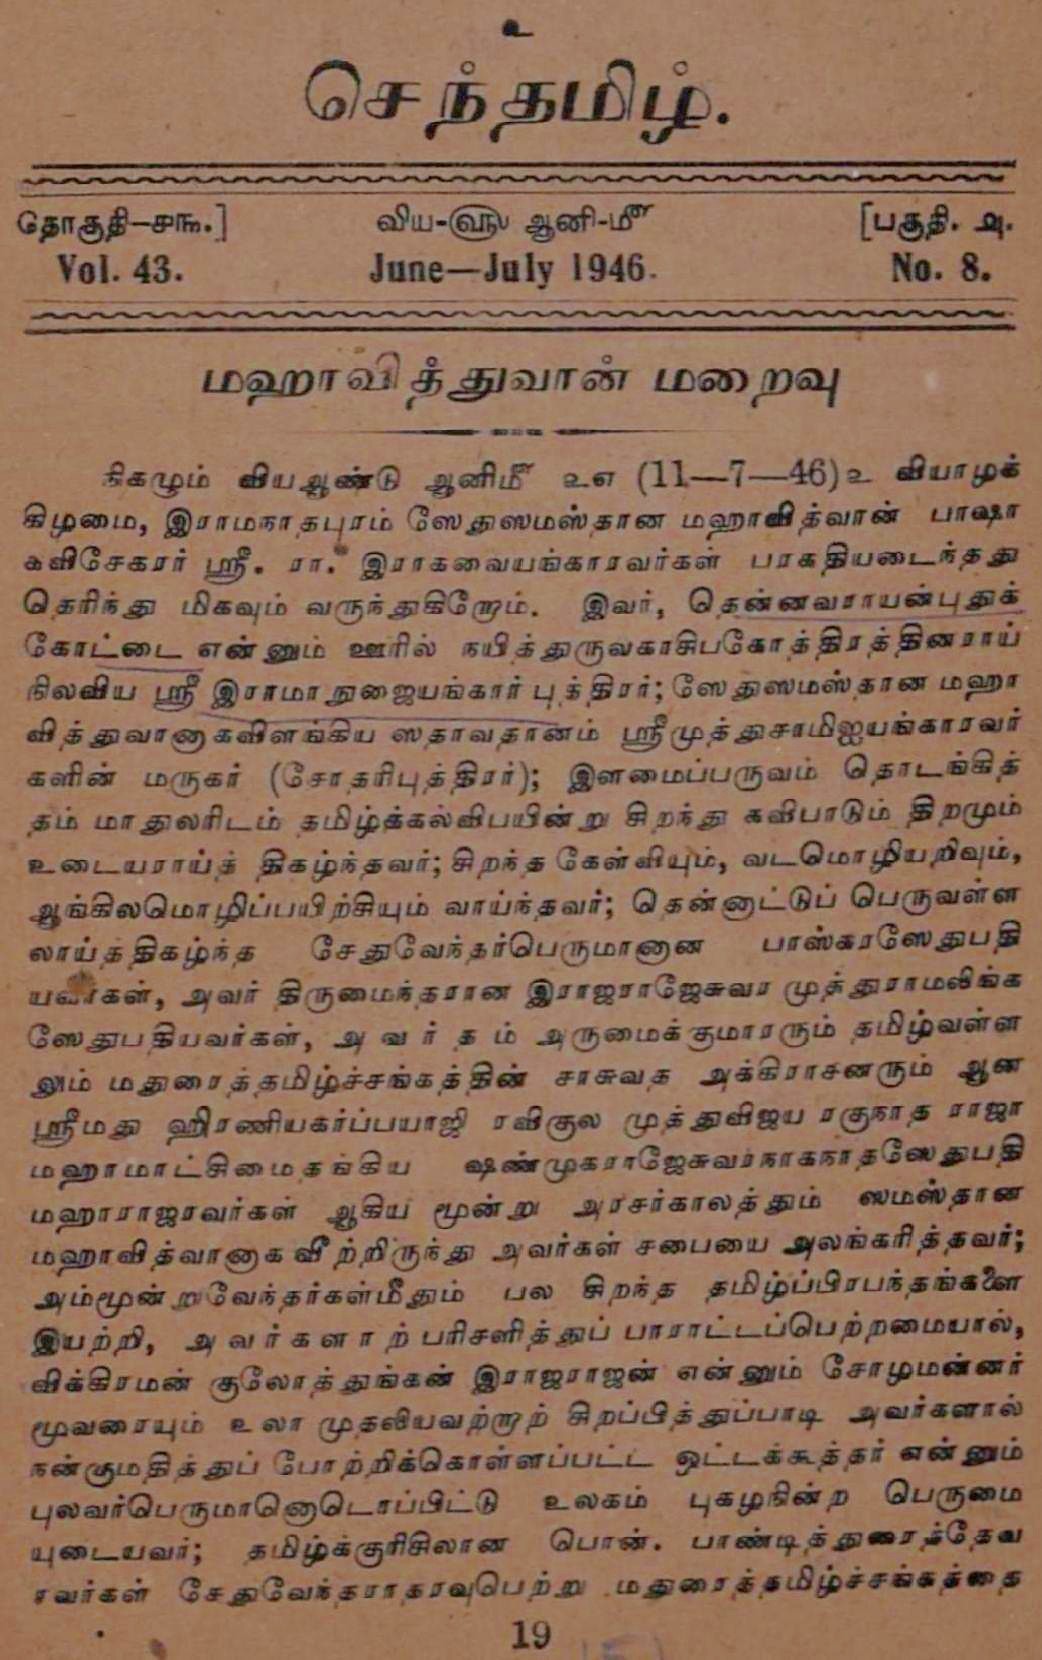 உ
செந்தமிழ்.
தொகுதி—௪௩.] விய-௵ ஆனி-௴ [பகுதி. ௮.
Vol. 43. June—July 1946. No. 8.
மஹாவித்துவான் மறைவு
நிகழும் வியஆண்டு ஆனி௴ ௨௭ (11—7—46)உ வியாழக்
கிழமை, இராமநாதபுரம் ஸேதுஸமஸ்தான மஹாவித்வான் பாஷா
கவிசேகரர் ஸ்ரீ. ரா. இராகவையங்காரவர்கள் பரகதியடைந்தது
தெரிந்து மிகவும் வருந்துகிறோம். இவர், தென்னவராயன்புதுக்
கோட்டை என்னும் ஊரில் நயித்துருவகாசிபகோத்திரத்தினராய்
நிலவிய ஸ்ரீ இராமாநுஜையங்கார் புத்திரர்; ஸேதுஸமஸ்தான மஹா
வித்துவானாகவிளங்கிய ஸதாவதானம் ஸ்ரீமுத்துசாமிஐயங்காரவர்
களின் மருகர் (சோதரிபுத்திரர்); இளமைப்பருவம் தொடங்கித்
தம் மாதுலரிடம் தமிழ்க்கல்விபயின்று சிறந்து கவிபாடும் திறமும்
உடையராய்த் திகழ்ந்தவர்; சிறந்த கேள்வியும், வடமொழியறிவும்,
ஆங்கிலமொழிப்பயிற்சியும் வாய்ந்தவர்; தென்னாட்டுப் பெருவள்ள
லாய்த்திகழ்ந்த சேதுவேந்தர்பெருமானான பாஸ்கரஸேதுபதி
யவர்கள், அவர் திருமைந்தரான இராஜராஜேசுவர முத்துராமலிங்க
ஸேதுபதியவர்கள், அவர் தம் அருமைக்குமாரரும் தமிழ்வள்ள
லும் மதுரைத்தமிழ்ச்சங்கத்தின் சாசுவத அக்கிராசனரும் ஆன
ஸ்ரீமது ஹிரணியகர்ப்பயாஜி ரவிகுல முத்துவிஜய ரகுநாத ராஜா
மஹாமாட்சிமைதங்கிய ஷண்முகராஜேசுவரநாகநாதஸேதுபதி
மஹாராஜரவர்கள் ஆகிய மூன்று அரசர்காலத்தும் ஸமஸ்தான
மஹாவித்வானாக வீற்றிருந்து அவர்கள் சபையை அலங்கரித்தவர்;
அம்மூன்றுவேந்தர்கள்மீதும் பல சிறந்த தமிழ்ப்பிரபந்தங்களை
இயற்றி, அவர்களாற் பரிசளித்துப் பாராட்டப்பெற்றமையால்,
விக்கிரமன் குலோத்துங்கன் இராஜராஜன் என்னும் சோழமன்னர்
மூவரையும் உலா முதலியவற்றாற் சிறப்பித்துப்பாடி அவர்களால்
நன்குமதித்துப் போற்றிக்கொள்ளப்பட்ட ஒட்டக்கூத்தர் என்னும்
புலவர்பெருமானொடொப்பிட்டு உலகம் புகழநின்ற பெருமை
யுடையவர்; தமிழ்க்குரிசிலான பொன். பாண்டித்துரைத்தேவ
ரவர்கள் சேதுவேந்தராதரவுபெற்று மதுரைத்தமிழ்ச்சங்கத்தை
19